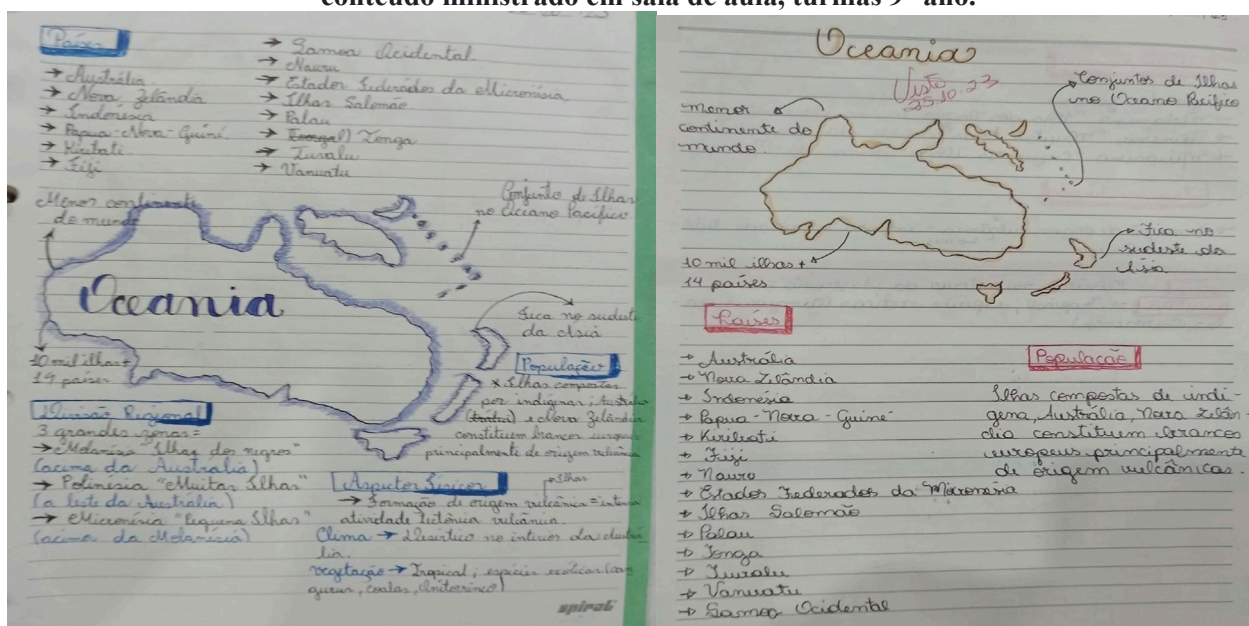 conteúdo ministrado em sala de aula, turmas 9º ano.
Países
→ Austrália
→ Nova Zelândia
→ Indonésia
→ Papua-Nova-Guiné
→ Kiribati
→ Fiji
→ Samoa Ocidental
→ Nauru
→ Estados Federados da Micronésia
→ Ilhas Salomão
→ Palau
→ Tonga
→ Tuvalu
→ Vanuatu
Menor continente
do mundo
Conjunto de Ilhas
no Oceano Pacífico
Oceania
Fica no sudeste
da Asia
10 mil ilhas +
14 países
População
x Ilhas compostas
por indígenas; Austrália
e Nova Zelândia
constituem brancos europeus
principalmente de origem vulcânica
Divisão Regional
3 grandes zonas =
→ Melanésia "Ilhas dos negros"
(acima da Austrália)
→ Polinésia "Muitas Ilhas"
(a leste da Austrália)
→ Micronésia "Pequena Ilhas"
(acima da Melanésia)
Aspectos Físicos
Ilhas
→ Formação de origem vulcânica = intensa
atividade tectônica vulcânica.
Clima → Desértico no interior da Austrá
lia.
vegetação → Tropical; espécies exóticas (can
gurus, coalas, Ornitorrinco)
spiral
Oceania
Visto
25.10.23
menor
continente do
mundo
Conjuntos de Ilhas
no Oceano Pacífico
Fica no
sudeste da
Ásia
10 mil ilhas +
14 países
Países
→ Austrália
→ Nova Zelândia
→ Indonesia
→ Papua-Nova-Guiné
→ Kiribati
→ Fiji
→ Nauro
→ Estados Federados da Micronesia
→ Ilhas Salomão
→ Palau
→ Tonga
→ Tuvalu
→ Vanuatu
→ Samoa Ocidental
População
Ilhas compostas de indi-
gena, Austrália, Nova Zelân
dia constituem brancos
europeus principalmente
de origem vulcânicas.